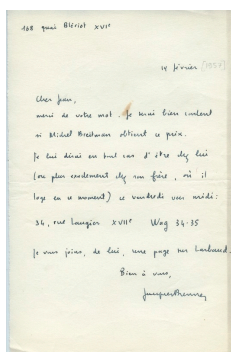 168 quai Blériot XVIe
14 février [1957]
Cher Jean,
merci de votre mot. Je serai bien content
si Michel Breitman obtient ce prix.
Je lui dirai en tout cas d'être chez lui
(ou plus exactement chez son frère, où il
loge en ce moment) ce vendredi vers midi:
34, rue Laugier XVIIe Wag 34-35
Je vous joins, de lui, une page sur Larbaud.
Bien à vous,
Jacques Brenner